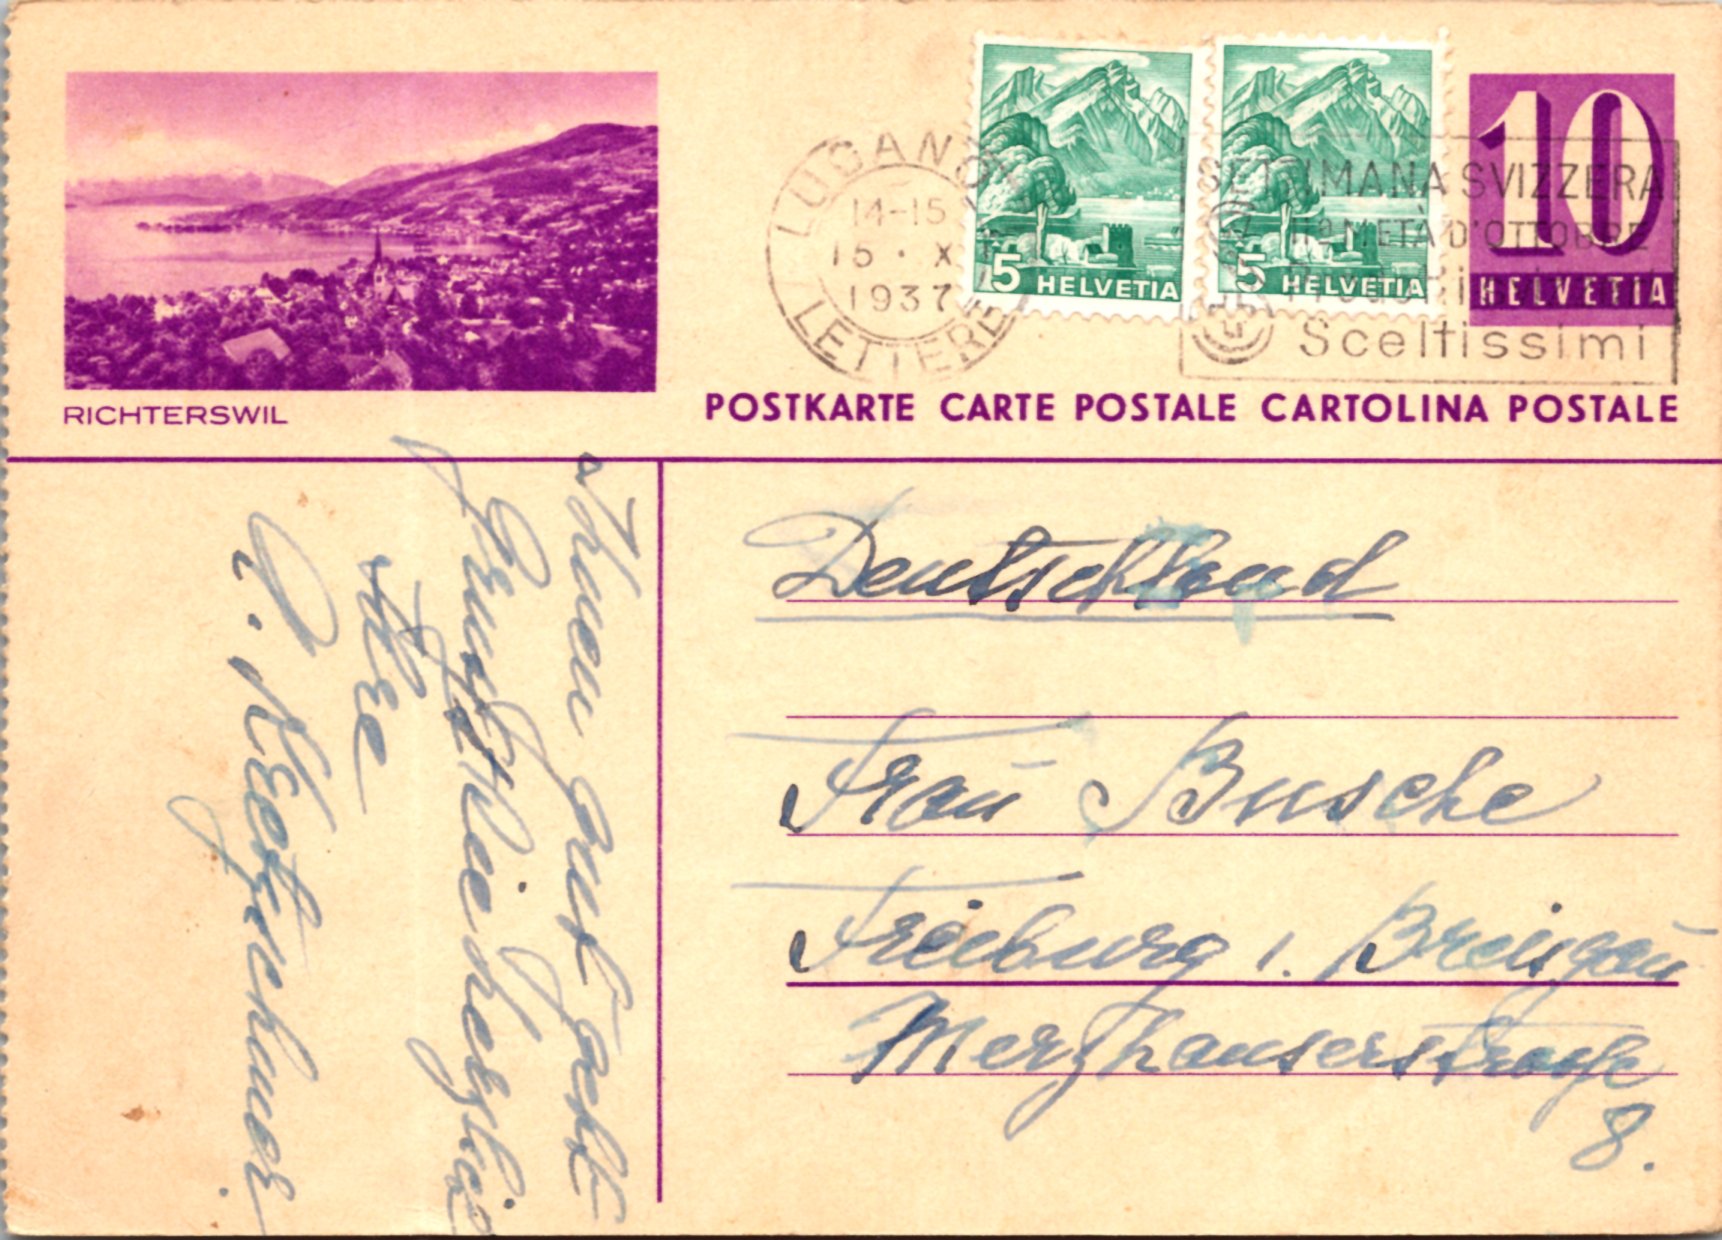 LUGANO
14-15
15 · X
1937
LETTERE
5 HELVETIA
5 HELVETIA
10
HELVETIA
SETTIMANA SVIZZERA
METÀ D'OTTOBRE
Sceltissimi
RICHTERSWIL
POSTKARTE CARTE POSTALE CARTOLINA POSTALE
Deutschland
Frau Busche
Freiburg i. Breisgau
Merzhauserstraße
8.
Ihnen gut geht
Grüßt Sie herzlich
Ihre